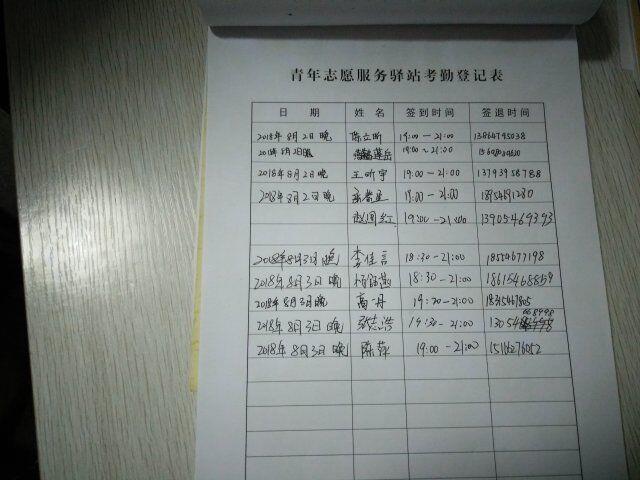 青年志愿服务驿站考勤登记表
日 期 姓 名 签到时间 签退时间
2018年8月2日晚 陈立昕 19:00-21:00 13864795038
2018年8月2日晚 莲岳 19:00-21:00
2018年8月2日晚 王昕宇 19:00-21:00 13793958788
2018年8月2日晚 19:00-21:00 18954691280
赵国红 19:00-21:00 13905469393
2018年8月3日晚 李佳言 18:30-21:00 18554677198
2018年8月3日晚 18:30-21:00 18615468859
2018年8月3日晚 高丹 19:20-21:00
2018年8月3日晚 张志浩 19:30-21:00 13054 668998
2018年8月3日晚 陈萍 19:00-21:00